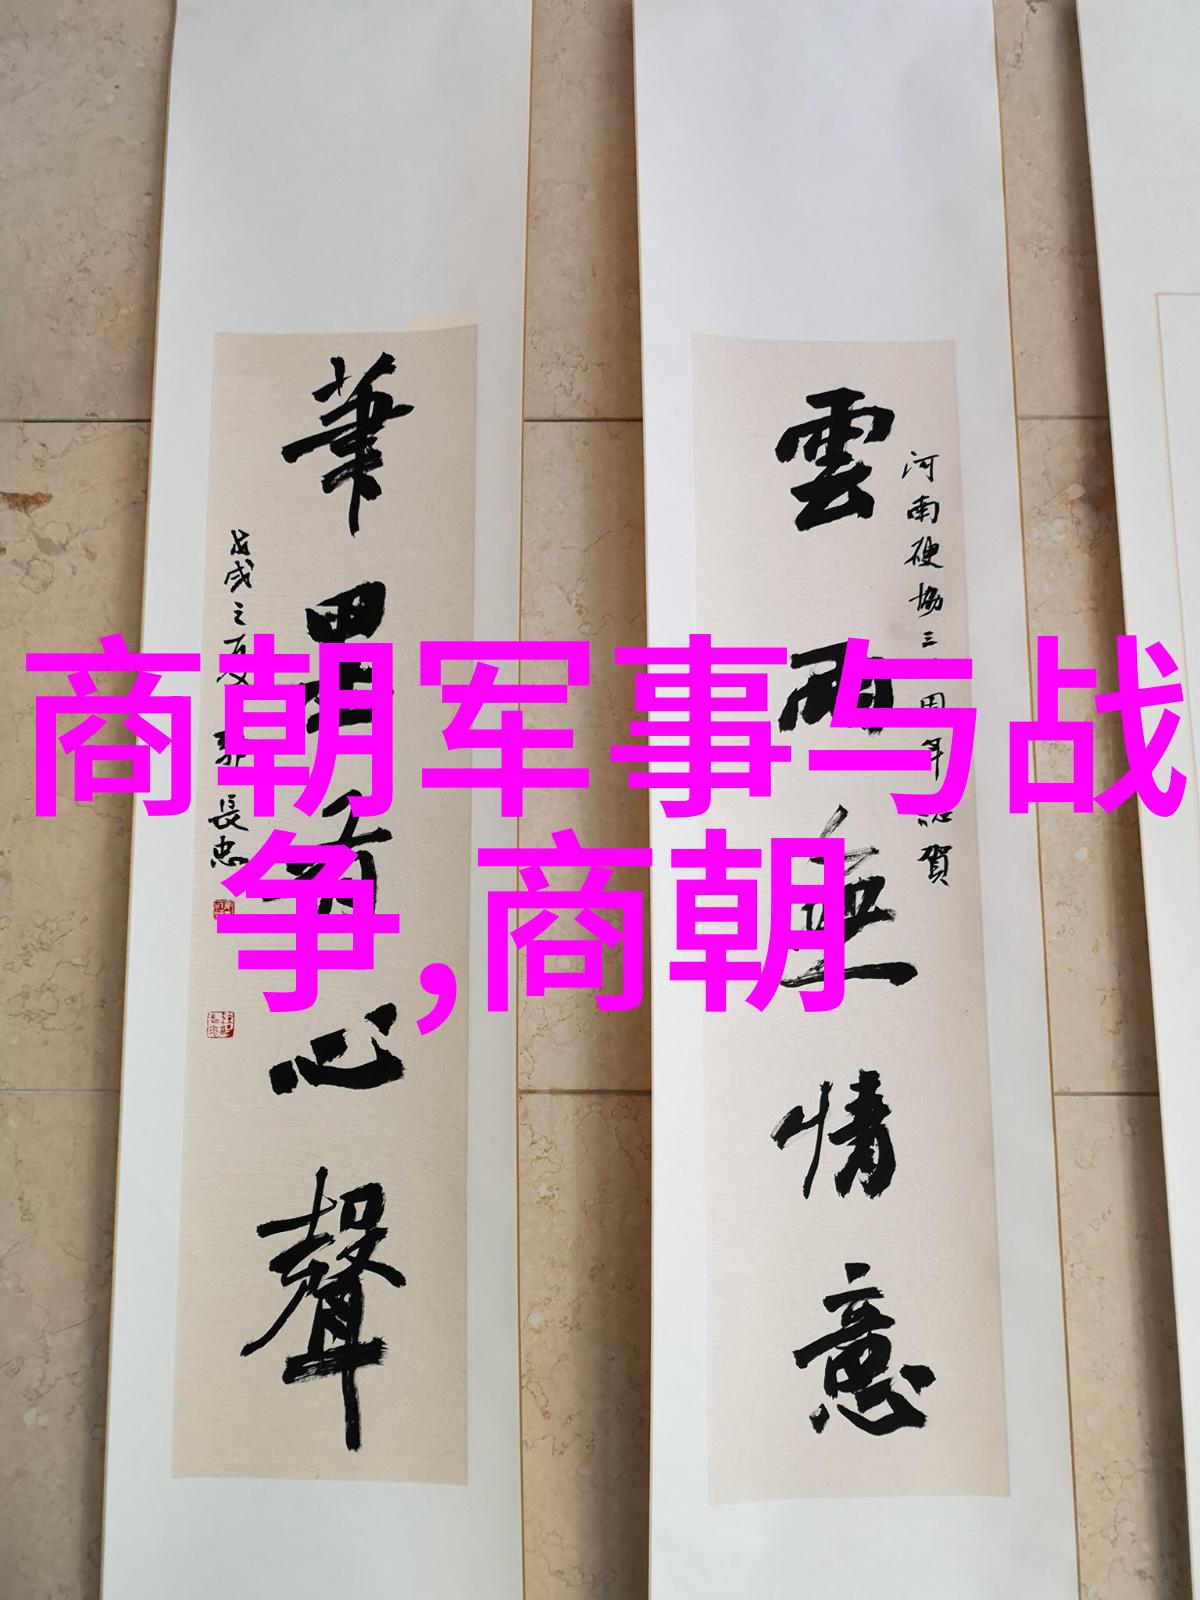 商朝军事与战
争,商朝
河南硬協三 周年 賀
雲雨無情意
筆墨有心聲
戊戌之夏 長忠